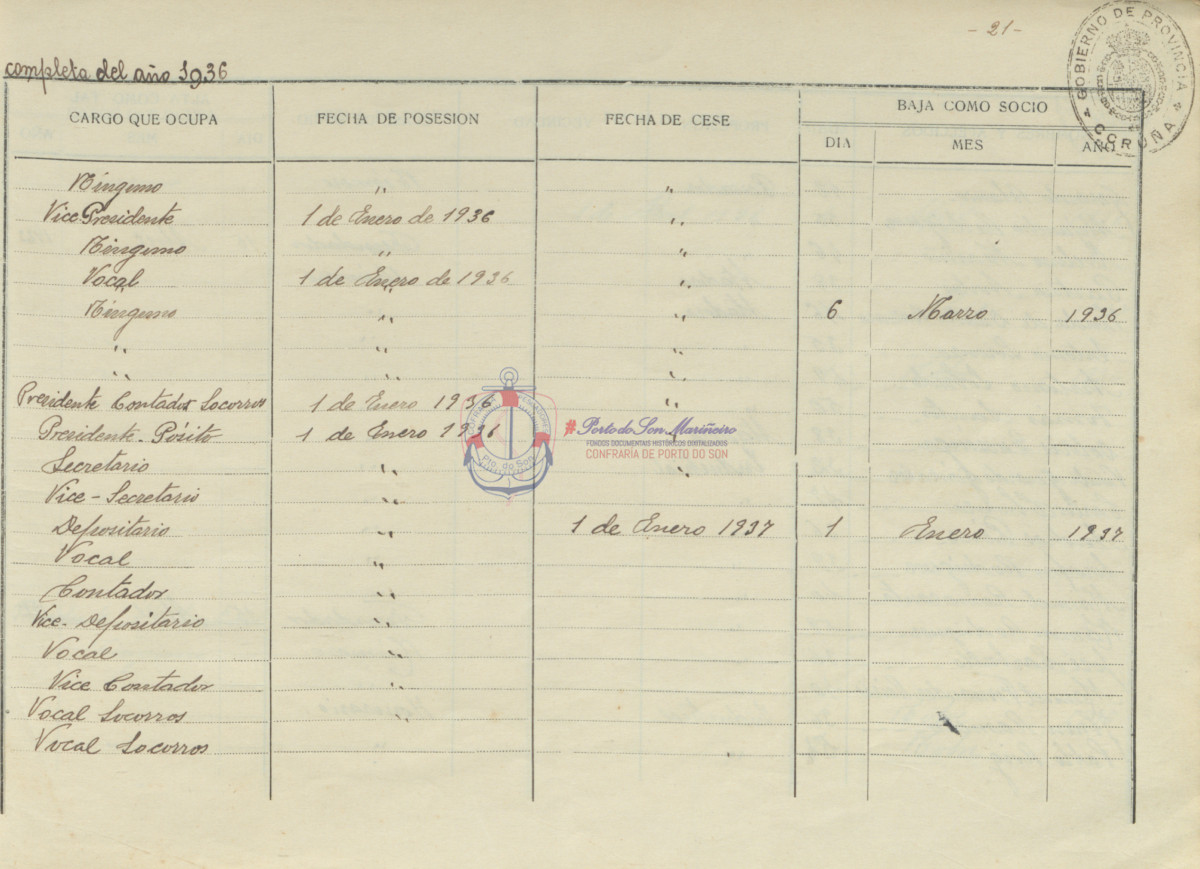 - 21 -
GOBIERNO DE PROVINCIA
CORUÑA
completa del año 1936
CARGO QUE OCUPA FECHA DE POSESION FECHA DE CESE BAJA COMO SOCIO
DIA MES AÑO
Ninguno " "
Vice Presidente 1 de Enero de 1936 "
Ninguno " "
Vocal 1 de Enero de 1936 "
Ninguno " " 6 Marzo 1936
" " "
" " "
Presidente Contador Socorros 1 de Enero 1936 "
Presidente - Pósito 1 de Enero 1936 "
Secretario " "
Vice - Secretario "
Depositario " 1 de Enero 1937 1 Enero 1937
Vocal "
Contador "
Vice - Depositario "
Vocal "
Vice Contador "
Vocal Socorros "
Vocal Socorros
COFRADIA PESCADORES
Pto. do Son
# Porto do Son Mariñeiro
FONDOS DOCUMENTAIS HISTÓRICOS DIXITALIZADOS
CONFRARÍA DE PORTO DO SON